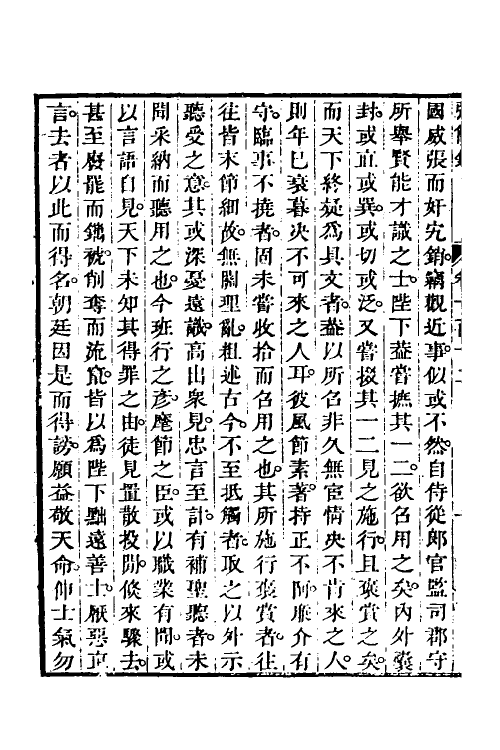 國威張而奸宄銷竊觀近事似或不然自侍從郎官監司郡守
所舉賢能才識之士陛下葢嘗撫其一二欲召用之矣內外囊
封或直或巽或切或泛又嘗掇其一二見之施行且褒賞之矣
而天下終疑爲具文者葢以所召非久無宦情决不肯來之人
則年已衰暮决不可來之人耳彼風節素著持正不阿廉介有
守臨事不撓者固未嘗收拾而召用之也其所施行褒賞者往
往皆末節細故無關理亂粗述古今不至抵觸者取之以外示
聽受之意其或深憂遠識高出衆見忠言至計有補聖聽者未
聞采納而聽用之也今班行之彦麾節之臣或以職業有聞或
以言語自見天下未知其得罪之由徒見置散投閒倐來驟去
甚至廢罷而鐫褫削奪而流竄皆以爲陛下黜遠善士厭惡直
言去者以此而得名朝廷因是而得謗願益敬天命伸士氣勿